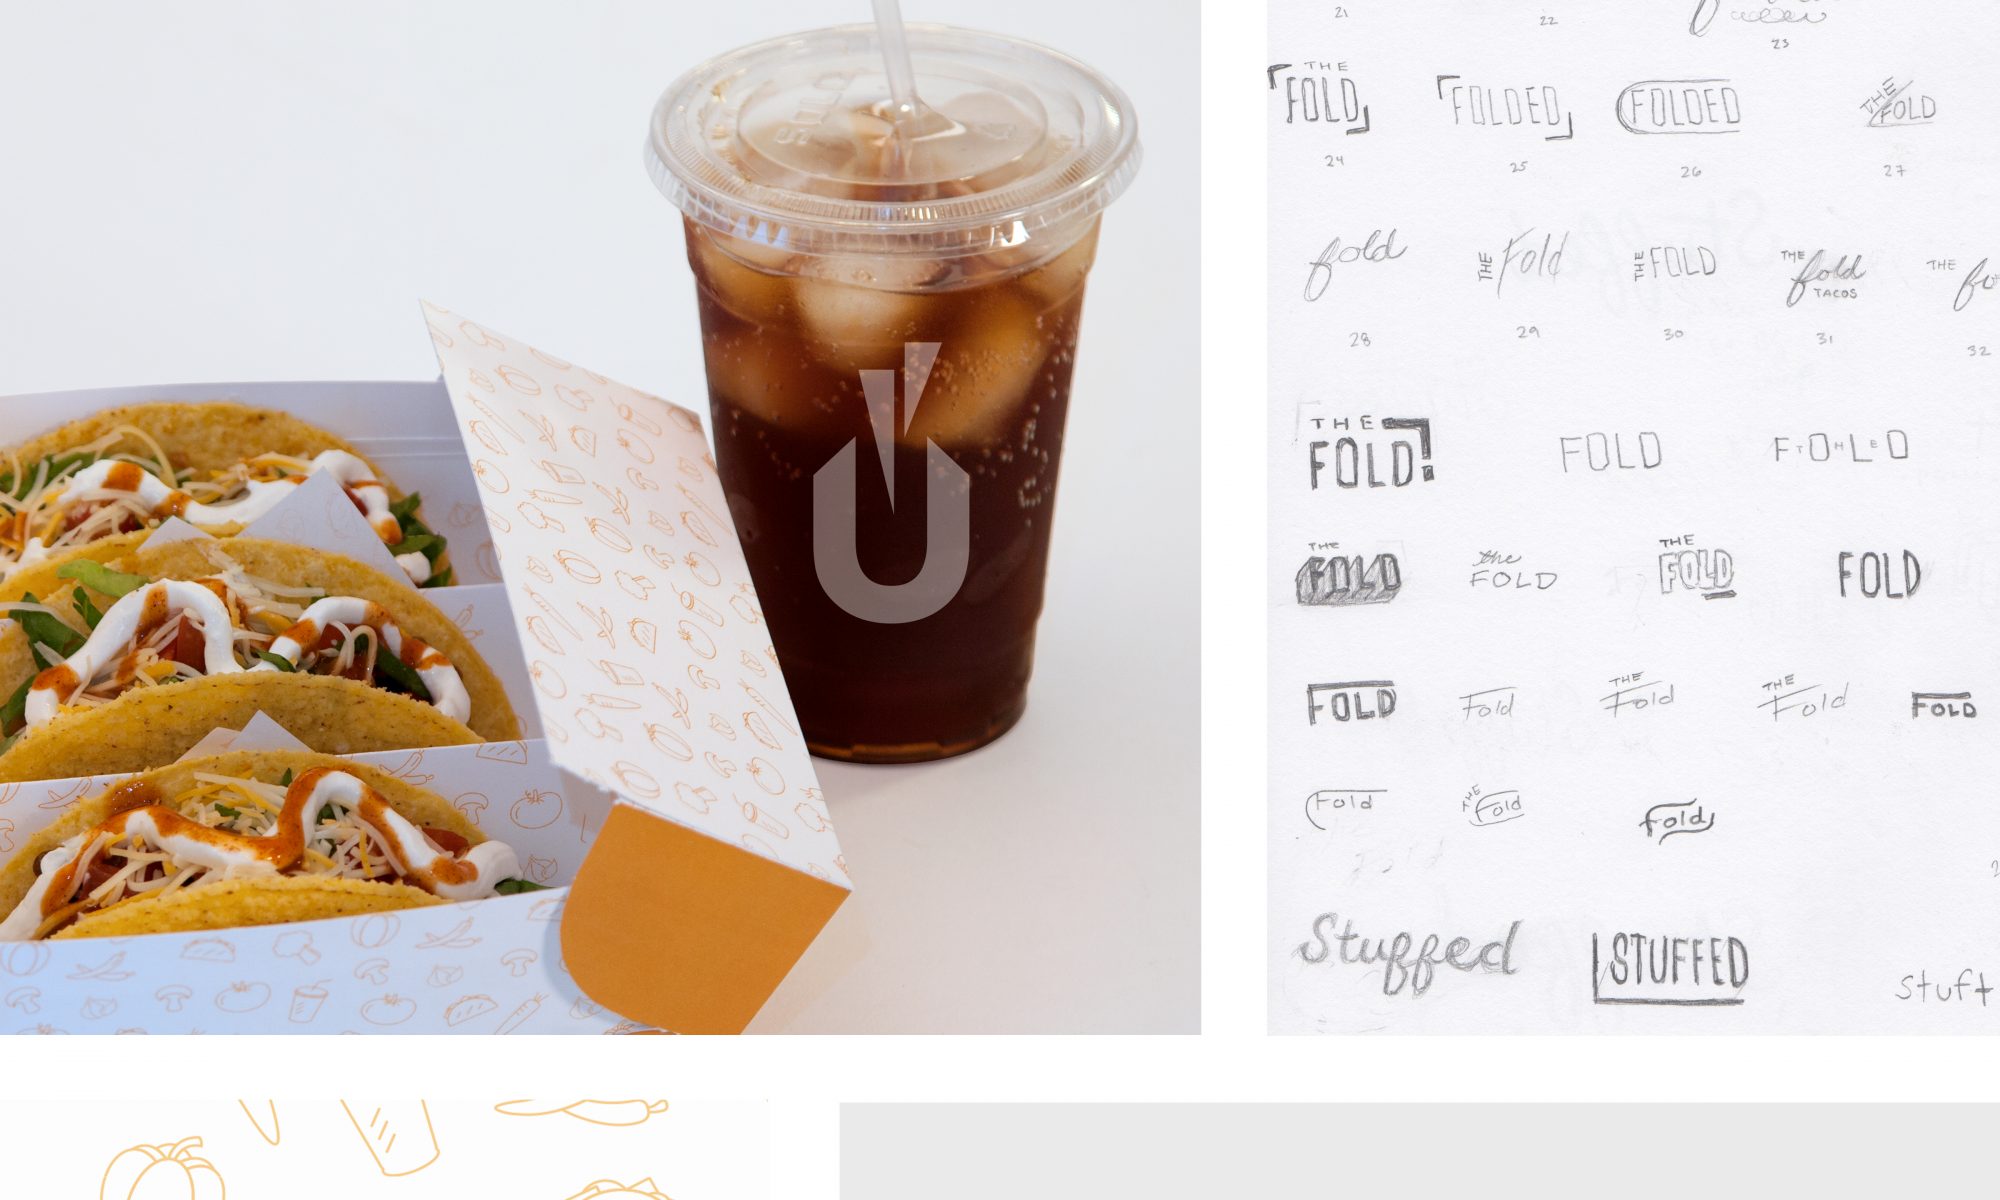 SOLO
21
22
23
THE
FOLD
FOLDED
FOLDED
THE
FOLD
24
25
26
27
fold
THE Fold
THE FOLD
THE fold
TACOS
THE
28
29
30
31
32
THE
FOLD
FOLD
FTOHLED
THE
FOLD
the
FOLD
THE
FOLD
FOLD
FOLD
Fold
THE
Fold
THE
Fold
FOLD
Fold
THE
Fold
Fold
Stuffed
STUFFED
stuft